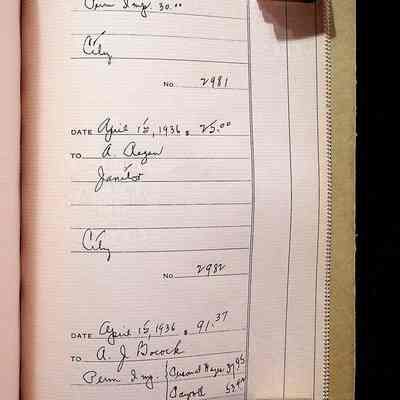 Perm Img. 30.00
City
No 2981
DATE April 15, 1936 $ 25.00
TO A. Aegen
Janitor
City
No 2982
DATE April 15, 1936 $ 91.37
TO A. J. Bocock
Perm Img. Personal Wages 37.95
Payroll